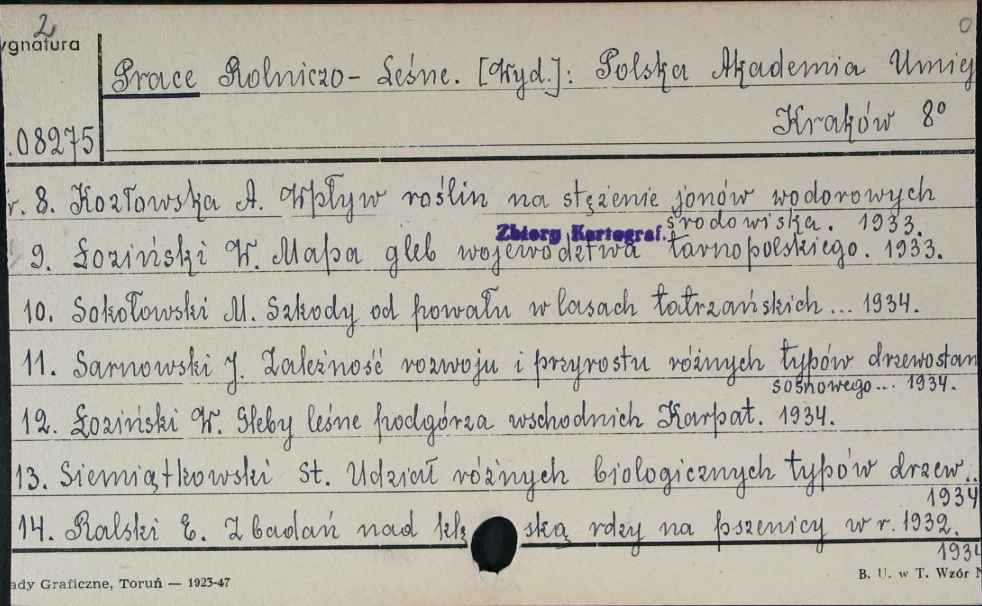 2
ygnatura
Prace Rolniczo-Leśne. [Wyd.]: Polska Akademia Umiej
Kraków 8°
.08275
r. 8. Kozłowska A. Wpływ roślin na stężenie jonów wodorowych
środowiska. 1933.
Zbiory Kartograf.
9. Łoziński W. Mapa gleb województwa tarnopolskiego. 1933.
10. Sokołowski M. Szkody od powału w lasach tatrzańskich... 1934.
11. Sarnowski J. Zależność rozwoju i przyrostu różnych typów drzewostan
sosnowego... 1934.
12. Łoziński W. Gleby leśne podgórza wschodnich Karpat. 1934.
13. Siemiątkowski St. Udział różnych biologicznych typów drzew..
1934
14. Ralski E. Z badań nad klęską rdzy na pszenicy w r. 1932.
1934
ady Graficzne, Toruń — 1923-47
B. U. w T. Wzór N